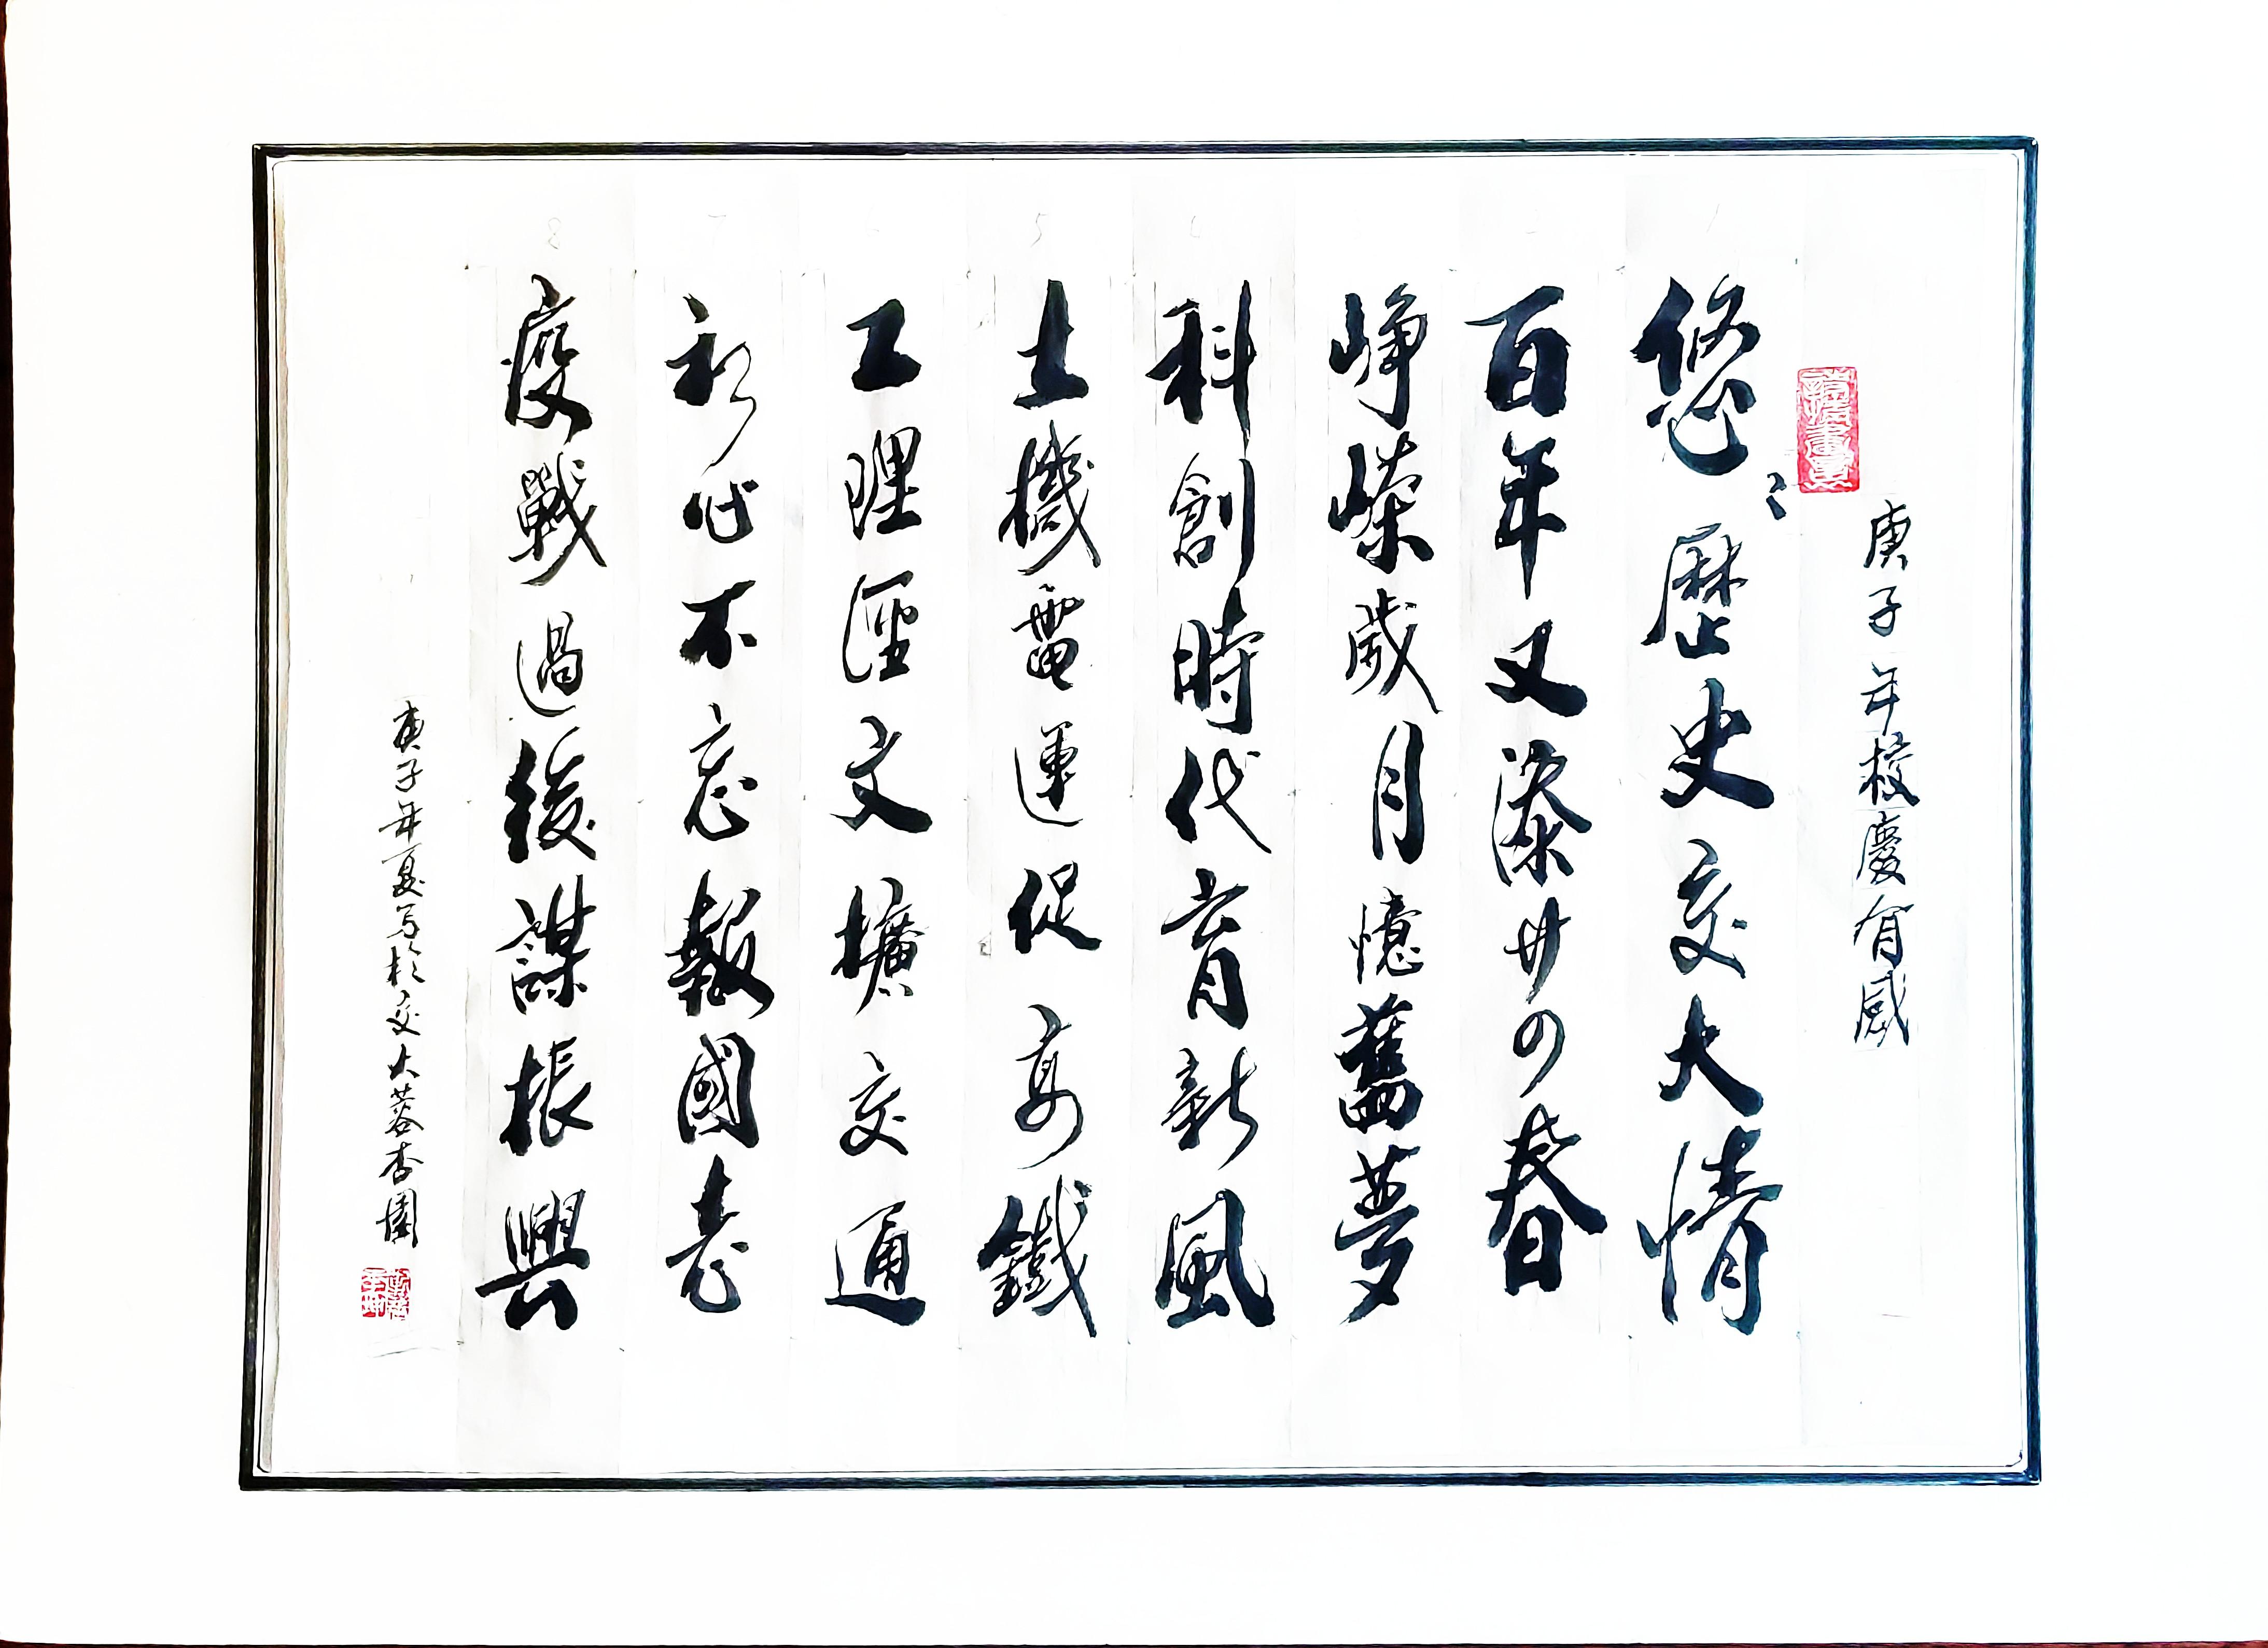 庚子年校慶有感
悠〻歷史交大情
百年又添廿四春
崢嶸歲月憶舊夢
科創時代育新風
土機電運促高鐵
工理經文擴交通
初心不忘報國志
疫戰過後謀振興
庚子年夏写於交大蓉杏園